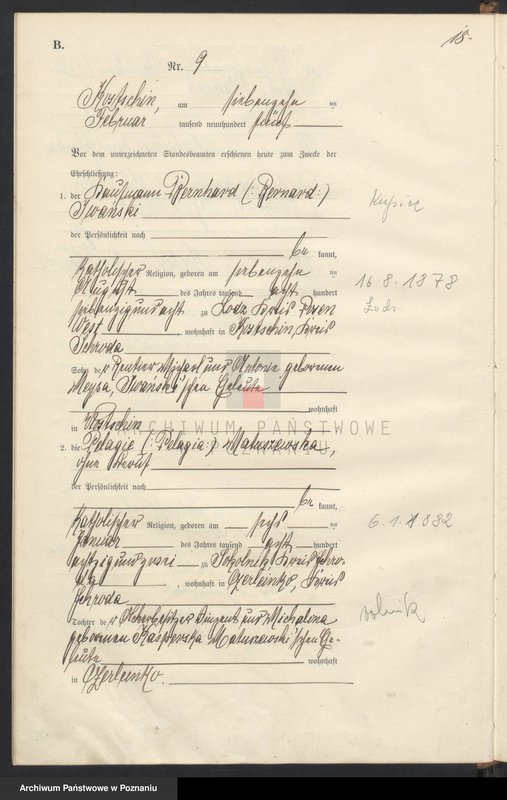 B.
18.
Nr. 9
Kostschin, am siebenzehn ten
Februar tausend neunhundert fünf
Vor dem unterzeichneten Standesbeamten erschienen heute zum Zwecke der
Eheschließung:
1. der Kaufmann Bernhard (: Bernard :)
Iwanski
Kupiec
der Persönlichkeit nach
be kannt,
katholischer Religion, geboren am siebenzehn ten
August des Jahres tausend acht hundert
16 8. 1878
siebenzigundacht zu Lodz Kreis Posen
Lodz
West, wohnhaft in Kostschin, Kreis
Schroda
Sohn der Rentier Michael und Antonie gebornen
Iwanski'schen Eheleute
wohnhaft
in Kostschin
ARCHIWUM PAŃSTWOWE
W POZNANIU
2. die Pelagie (: Pelagia :) Matuszewska,
ohne Beruf
der Persönlichkeit nach
be kannt,
katholischer Religion, geboren am sechs ten
6. 1. 1882
Januar des Jahres tausend acht hundert
achtzigundzwei zu Sokolnik Kreis Schro-
da, wohnhaft in Czerleinko, Kreis
Schroda
rolnik
Tochter der Ackerbesitzer Vinzent und Michalina
gebornen Kasprzewska Matuszewski'schen Ehe-
leute wohnhaft
in Czerleinko.
Archiwum Państwowe w Poznaniu